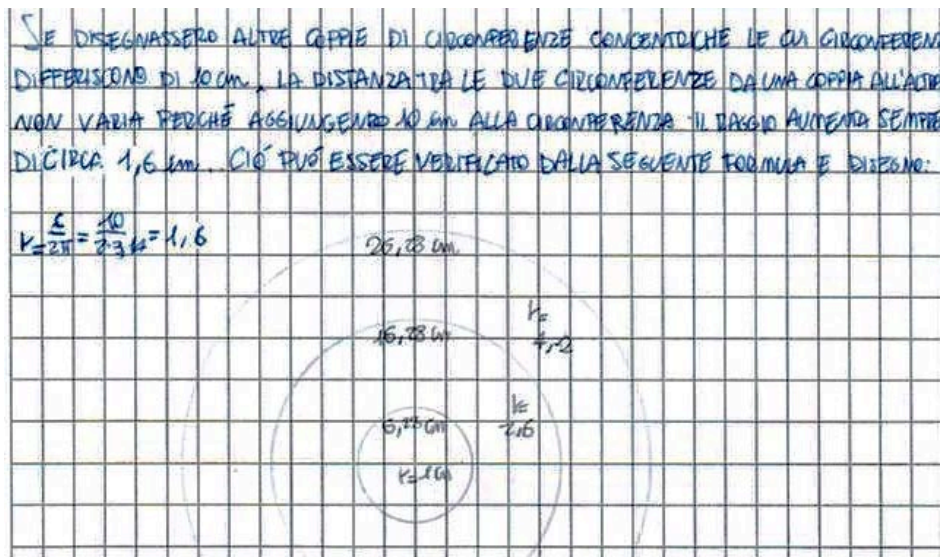 SE DISEGNASSERO ALTRE COPPIE DI CIRCONFERENZE CONCENTRICHE LE CUI CIRCONFEREN
DIFFERISCONO DI 10 cm, LA DISTANZA TRA LE DUE CIRCONFERENZE DA UNA COPPIA ALL'ALTRA
NON VARIA PERCHÉ AGGIUNGENDO 10 cm ALLA CIRCONFERENZA IL RAGGIO AUMENTA SEMPRE
DI CIRCA 1,6 cm. CIÓ PUÓ ESSERE VERIFICATO DALLA SEGUENTE FORMULA E DISEGNO:
r = C/2π = 10/2·3,14 = 1,6
26,28 cm
r=
4,2
16,28 cm
r=
2,6
6,28 cm
r=1cm